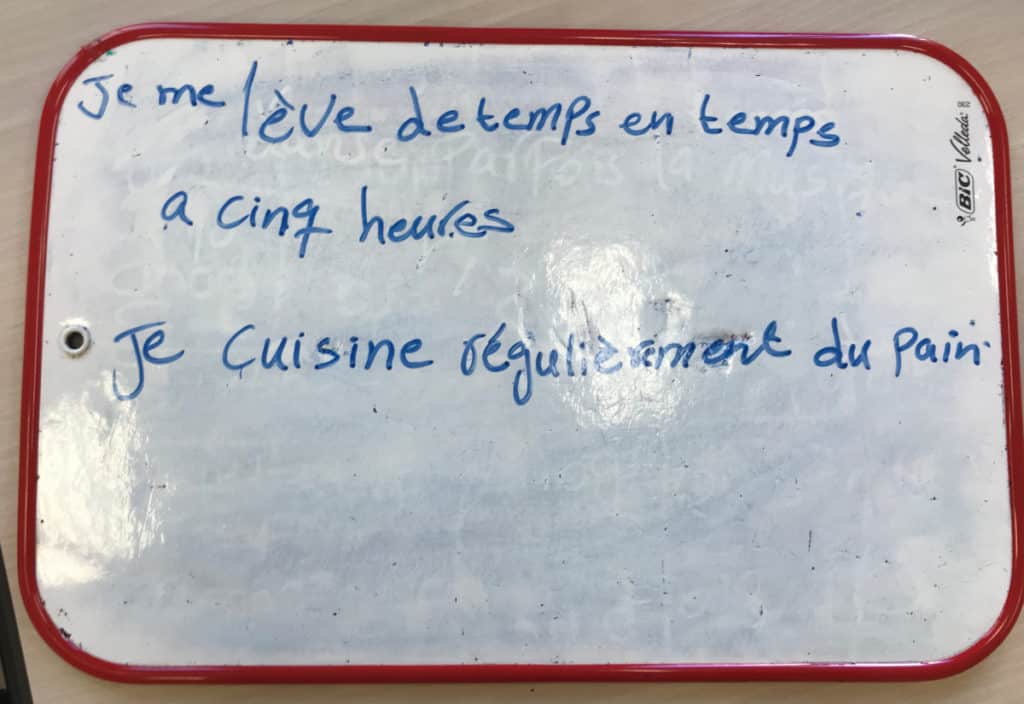 Je me lève de temps en temps
a cinq heures
Je cuisine régulièrement du pain.
BIC Velleda